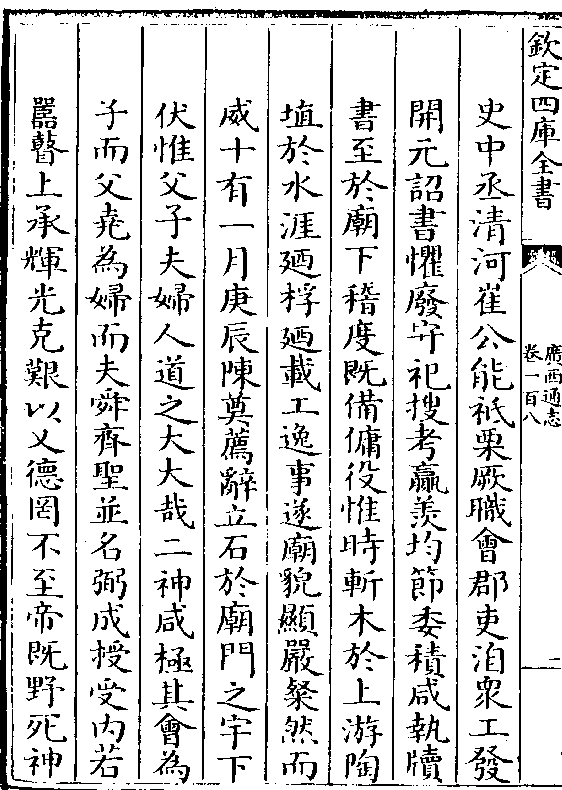 欽定四庫全書
廣西通志
卷一百八
二
史中丞清河崔公能祗栗厥職會郡吏洎衆工發
開元詔書懼廢守祀搜考贏羨均節委積咸執牘
書至於廟下稽度既備傭役惟時斬木於上游陶
埴於水涯廼桴廼載工逸事遂廟貌顯嚴粲然而
威十有一月庚辰陳奠薦辭立石於廟門之宇下
伏惟父子夫婦人道之大大哉二神咸極其會為
子而父堯為婦而夫舜齊聖並名弼成授受内若
嚚瞽上承輝光克艱以乂德罔不至帝既野死神